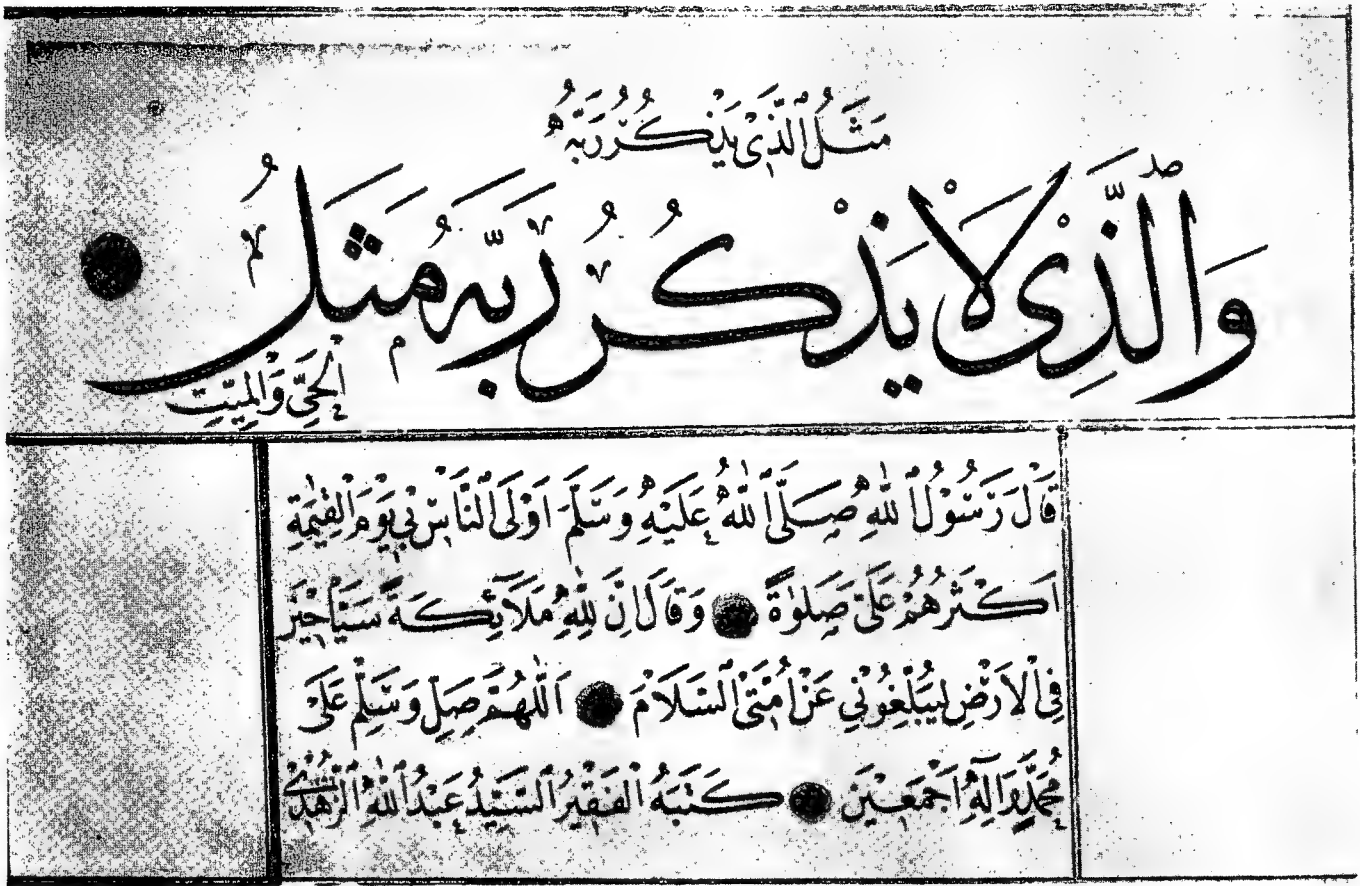 مَثَلُ ٱلَّذِيْ يَذْكُرُ رَبَّهُ
وَٱلَّذِيْ لَا يَذْكُرُ رَبَّهُ مَثَلُ
ٱلْحَيِّ وَٱلْمَيِّتِ
قَالَ رَسُوْلُ ٱللّٰهِ صَلَّى ٱللّٰهُ عَلَيْهِ وَسَلَّمَ اَوْلَى ٱلنَّاسِ بِيْ يَوْمَ ٱلْقِيٰمَةِ
اَكْثَرُهُمْ عَلَيَّ صَلٰوةً وَقَالَ اِنَّ لِلّٰهِ مَلَائِكَةً سَيَّاحِيْنَ
فِي ٱلْاَرْضِ يُبَلِّغُوْنِيْ عَنْ اُمَّتِيْ ٱلسَّلَامْ اَللّٰهُمَّ صَلِّ وَسَلِّمْ عَلَى
مُحَمَّدٍ وَاٰلِهِ اَجْمَعِيْنَ كَتَبَهُ ٱلْفَقِيْرُ ٱلسَّيِّدُ عَبْدُ ٱللّٰهِ ٱلزُّهْدِيْ